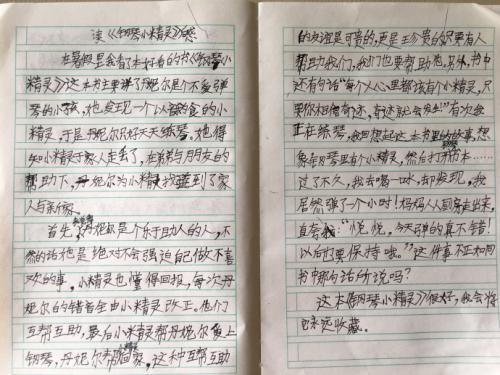 读《钢琴小精灵》有感
在暑假里会看了本好看的书《钢琴小
精灵》这本书主要讲了丹妮尔是个不爱弹
琴的小孩,她发现一个以音的食的小
精灵,于是丹妮尔只好天天练琴。她得
知小精灵于家人走丢了,在弟弟与朋友的
帮助下,丹妮尔为小精灵找到了家
人与新家。
首先,丹妮尔是个乐于助人的人,不
然的话她是绝对不会强迫自己做不喜
欢的事。小精灵也懂得回报,每次丹
妮尔的错音全由小精灵改正。他们
互帮互助,最后小精灵帮丹妮尔爱上
钢琴,丹妮尔帮小精灵回家。这种互帮互助
的友谊是可贵的,更是珍贵的只要有人
帮助我们,我们也要帮助他。另外,书中
还有句话"每个人心里都该有小精灵,只
要你相信奇迹,奇迹就会发生!"有次我
正在练琴,我回想起这本书里的故事,想
象在钢琴里有个小精灵,然后打开琴本……
过了不久,我去喝一口水,却发现,我
居然弹了一个小时!妈妈从厨房走出来,
直夸我:"悦悦,今天弹的真不错!
以后也要保持哦。"这件事不正如同
书中那句话所说吗?
这本《钢琴小精灵》很好,我会将
它永远收藏。